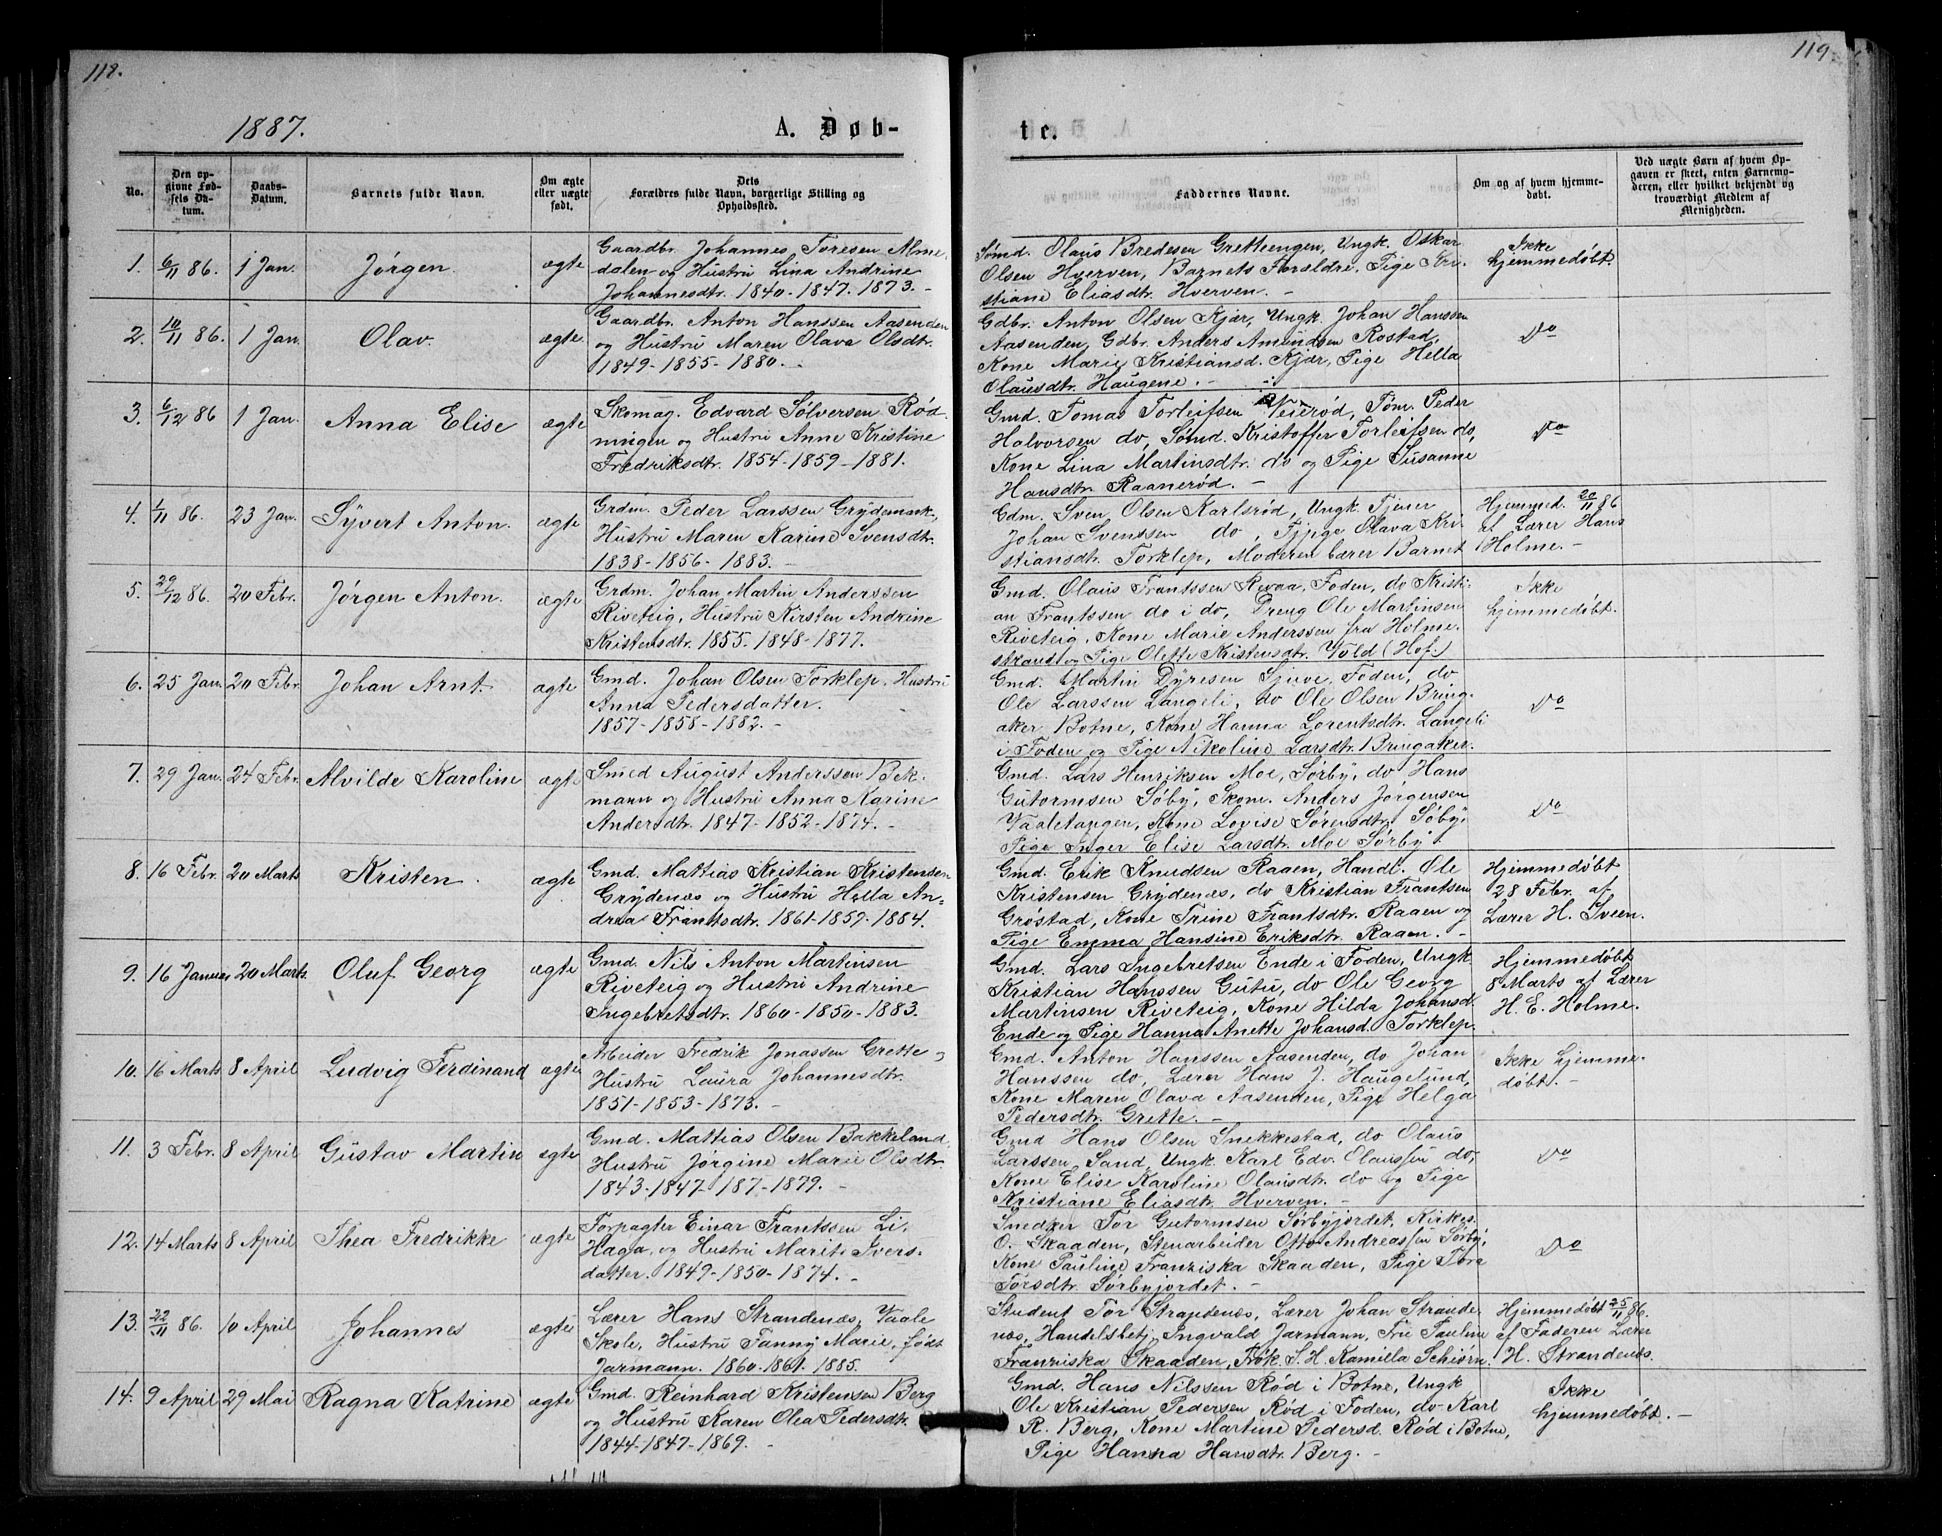 118.
119.
1887.
A. Døb-
te.
No.
Den op-
givne Fød-
sels Da-
tum.
Daabs-
Datum.
Barnets fulde Navn.
Om ægte
eller uægte
født.
Dets
Forældres fulde Navn, borgerlige Stilling og
Opholdssted.
Faddernes Navne.
Om og af hvem hjemme-
døbt.
Ved uægte Børn af hvem Op-
gaven er skeet, enten Barnemo-
deren, eller hvilket bekjendt og
troværdigt Medlem af
Menigheden.
1. 6/11 86. 1 Jan. Jørgen. ægte
Gaardbr. Johannes Toresen Alme-
dalen og Hustru Lina Andrine
Johannesdtr. 1840-1847. 1873.-
Sømd. Olaus Bredesen Gretteengen, Ungk. Oskar
Olsen Hverven, Barnets Forældre, Pige Kri-
stiane Eliasdtr. Hverven.-
Ikke
hjemmedøbt.
2. 10/11 86. 1 Jan. Olav. ægte.
Gaardbr. Anton Hanssen Aasenden
og Hustru Maren Olava Olsdtr.
1849-1855-1880.-
Gdbr. Anton Olsen Kjær, Ungk. Johan Hanssen
Aasenden, Gdbr. Anders Amundsen Rostad,
Kone Marie Kristiansd. Kjær, Pige Hella
Olausdtr. Haugene.-
Do
3. 6/12 86 1 Jan. Anna Elise ægte
Skomag. Edvard Sølversen Rød-
ningen og Hustru Anne Kristine
Fredriksdtr. 1854-1859-1881.
Gmd. Tomas Torleifsen Veierød, Tøm. Peder
Halvorsen do, Sømd. Kristoffer Torleifsen do,
Kone Lina Martinsdtr. do og Pige Susanne
Hansdtr. Raanerød.-
Do
4. 1/11 86. 23 Jan. Syvert Anton. ægte
Grdm. Peder Larssen Grydemark,
Hustru Maren Karine Svensdtr.
1838-1856-1883.-
Gdm. Sven Olsen Karlsrød, Ungk. Tjener
Johan Svenssen do, Tjpige Olava Kri-
stiansdtr. Torklep, Moderen bærer Barnet
Hjemmed. 20/11 86
af Lærer Hans
Holme.-
5. 29/12 86. 20 Febr. Jørgen Anton. ægte
Grdm. Johan Martin Anderssen
Riveteig, Hustru Kirsten Andrine
Kristensdtr. 1855. 1848-1877.
Gmd. Olaus Frantssen Revaa, Foden, do Kristi-
an Frantssen do i do, Dreng Ole Martinsen
Riveteig, Kone Marie Anderssen fra Holme-
strand og Pige Olette Kristensdtr. Vold (Hof.)
Ikke
hjemmedøbt.
6. 25 Jan. 20 Febr. Johan Arnt. ægte
Gmd. Johan Olsen Torklep. Hustru
Anna Pedersdatter.
1857-1858-1882.-
Gmd. Martin Dyresen Gjuve, Foden, do
Ole Larssen Langeli, do Ole Olsen Bring-
aker Botne, Kone Hanna Lorentsdtr. Langeli
i Foden og Pige Nikoline Larsdtr. Bringaker.
Do
7. 29 Jan. 24 Febr. Alvilde Karoline ægte
Smed August Anderssen Bek-
mann og Hustru Anna Karine
Andersdtr. 1847-1852-1874.-
Gmd. Lars Henriksen Moe, Sørby, do Hans
Gutormsen Søby, Skom. Anders Jørgensen
Vaaletangen, Kone Lovise Sørensdtr. Søby,
Pige Inger Elise Larsdtr. Moe Sørby.
Do
8. 16 Febr. 20 Marts Kristen. ægte
Gmd. Mattias Kristian Kristensen
Grydenes og Hustru Hella An-
drea Frantsdtr. 1861-1859-1884.
Gmd. Erik Knudsen Raaen, Handl. Ole
Kristensen Grydenes, do Kristian Frantsen
Grøstad, Kone Trine Frantsdtr. Raaen og
Pige Emma Hansine Eriksdtr. Raaen.-
Hjemmedøbt
28 Febr. af
Lærer H. Sveen.
9. 16 Januar 20 Marts. Oluf Georg ægte
Gmd. Nils Anton Martinsen
Riveteig og Hustru Andrine
Ingebretsdtr. 1860-1850-1883.
Gmd. Lars Ingebretsen Ende i Foden, Ungk
Kristian Hanssen Gutu, do Ole Georg
Martinsen Riveteig, Kone Hilda Johansd.
Ende og Pige Hanna Anette Johansd. Torklep.
Hjemmedøbt
8 Marts af Lærer
H. E. Holme.
10. 16 Marts 8 April Ludvig Ferdinand ægte
Arbeider Fredrik Jonassen Grette og
Hustru Laura Johannesdtr.
1851-1853-1873.-
Gmd. Anton Hanssen Aasenden, do Johan
Hanssen do, Lærer Hans J. Haugelund,
Kone Maren Olava Aasenden, Pige Helga
Pedersdtr. Grette.-
Ikke hjemme-
døbt.-
11. 3 Febr. 8 April Gustav Martin ægte
Gmd. Mattias Olsen Bakkeland,
Hustru Jørgine Marie Olsdtr.
1843-1847-187-1879.-
Gmd Hans Olsen Snekkestad, do Olaus
Larssen Sand, Ungk. Karl Edv. Olaussen do,
Kone Elise Karoline Olausdtr. do og Pige
Kristiane Eliasdtr. Hverven.-
Do
12. 14 Marts 8 April Thea Fredrikke ægte
Forpagter Einar Frantssen Li-
Haga, og Hustru Marit Ivers-
datter. 1849-1850-1874.-
Snedker Tor Gutormsen Sørbyjordet, Kirkes.
O. Skaaden, Stenarbeider Otto Andreassen Sørby,
Kone Pauline Franziska Skaaden, Pige Tora
Torsdtr. Sørbyjordet.-
Do
13. 22/11 86. 10 April Johannes ægte
Lærer Hans Strandenæs, Vaale
Skole, Hustru Fanny Marie, født
Jarmann. 1860-1861-1885.
Student Tor Strandenæs, Lærer Johan Strande-
næs, Handelsbetj. Ingvald Jarmann, Fru Pauline
Franziska Skaaden, Frøk. S. H. Kamilla Schiørn.
Hjemmedøbt 25/11 86.
af Faderen Lærer
H. Strandenæs.
14. 9 April 29 Mai Ragna Katrine ægte
Gmd. Reinhard Kristensen Berg
og Hustru Karen Olea Pedersdtr.
1844-1847-1869.-
Gmd. Hans Nilssen Rød i Botne, Ungk
Ole Kristian Pedersen Rød i Foden, do Karl
R. Berg, Kone Martine Pedersd. Rød i Botne,
Pige Hanna Hansdtr. Berg.-
Ikke
hjemmedøbt.-